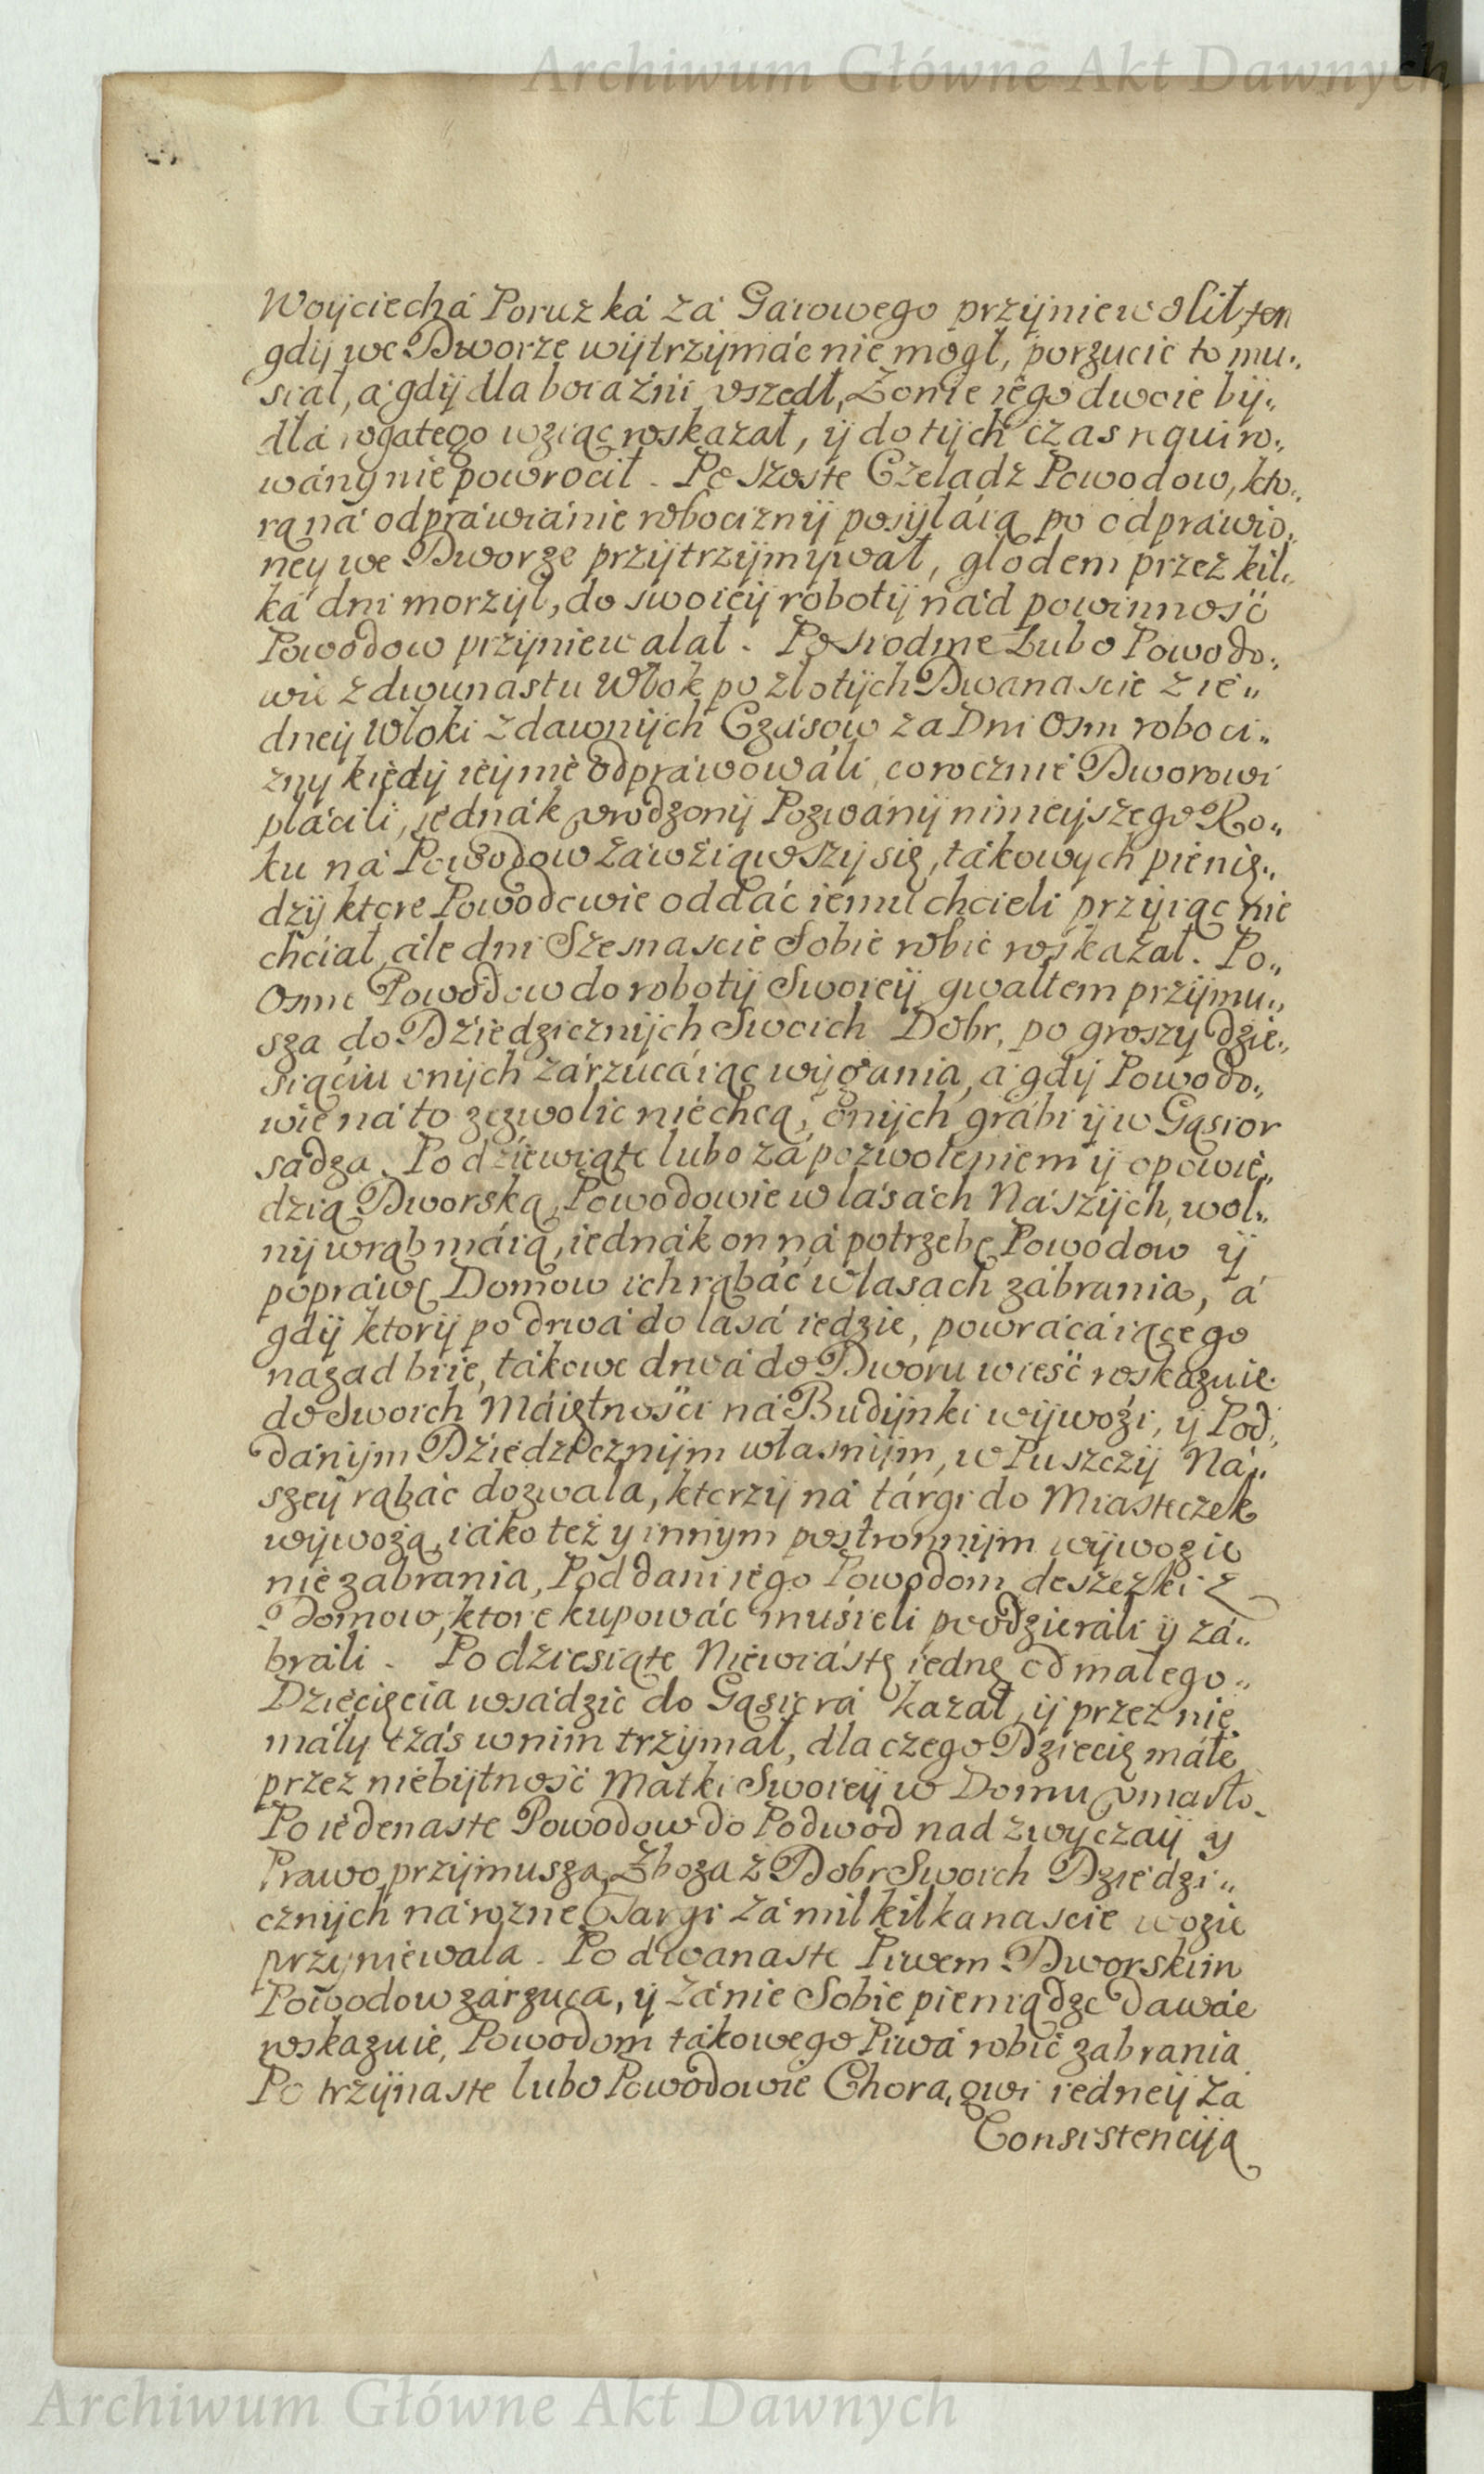 Archiwum Główne Akt Dawnych
Woyciechá Poruzká zá Gáiowego przyniewolił, ten
gdÿ we Dworze wÿtrzÿmáć nie mogł, porzucić to mu„
siał, á gdÿ dla boiaźni vszedł, Żonie iego dwoie bÿ„
dłá rogatego wziąć roskazał, ÿ do tÿch czas requiro„
wány nie powrocił. Po szoste Czeladź Powodow, kto„
rą ná odpráwiánie robociznÿ posÿłáią po odpráwio„
ney we Dworze przÿtrzÿmÿwał, głodem przez kil„
ká dni morzÿł, do swoieÿ robotÿ nád powinność
Powodow przÿniewalał. Po siodme Lubo Powodo„
wie z dwunastu Włok po złotÿch Dwanascie z ie„
dneÿ Włoki z dawnÿch Czásow za Dni Osm roboci„
zny kiedÿ ieÿ nie odpráwowáli, corocznie Dworowi
płácili, iednák vrodzonÿ Pozwánÿ ninieÿszego Ro„
ku ná Powodow záwźiąwszÿ się, tákowych pienię„
dzÿ ktore Powodowie oddáć iemu chcieli przÿiąc nie
chciał, ále dni Szesnascie Sobie robić roskazał. Po„
Osme Powodow do robotÿ Swoieÿ gwałtem przÿmu„
sza do Dziedzicznÿch Swoich Dobr, po groszy dzie„
siąciu onÿch zárzucáiąc wÿgania, á gdÿ Powodo„
wie ná to zezwolić nie chcą, onÿch grábi ÿ w Gąsior
sadza. Po dziewiąte lubo zá pozwoleniem ÿ opowie„
dzią Dworską, Powodowie w lásách Nászÿch, wol„
nÿ wrąb máią, iednák on ná potrzebę Powodow ÿ
popráwę Domow ich rąbáć w lasach zábrania, á
gdÿ ktorÿ po drwá do lasá iedzie, powrácáiącego
názad biie, tákowe drwá do Dworu wieść roskazuie
do Swoich Máiętności ná Budÿnki wÿwozi, ÿ Pod„
dánÿm Dziedzicznÿm własnÿm, w Puszczÿ Ná„
szeÿ rąbáć dozwala, ktorzÿ ná tárgi do Miasteczek
wÿwożą, iáko też y innym postronnÿm wÿwozić
nie zabrania, Poddáni iego Powodom deszczki z
Domow, ktore kupowáć musieli poodzieráli ÿ zá„
bráli. Po dziesiąte Niewiástę iednę od małego„
Dziecięcia wsádzić do Gąsiorá kazał, ÿ przez nie
máły czás w nim trzÿmał, dla czego Dziecię máłe
przez niebÿtność Mátki Swoieÿ w Domu vmarło.
Po iedenaste Powodow do Podwod nad zwyczaÿ y
Prawo przÿmusza, Zboza z Dobr Swoich Dziedzi„
cznÿch ná rozne Targi zá mil kilkanascie wozić
przyniewala. Po dwanaste Piwem Dworskim
Powodow zárzuca, ÿ zá nie Sobie pieniądze dawáć
roskazuie, Powodom tákowego Piwá robić zabrania
Po trzÿnaste lubo Powodowie Chorągwi iedneÿ zá
Consistenciją
Archiwum Główne Akt Dawnych